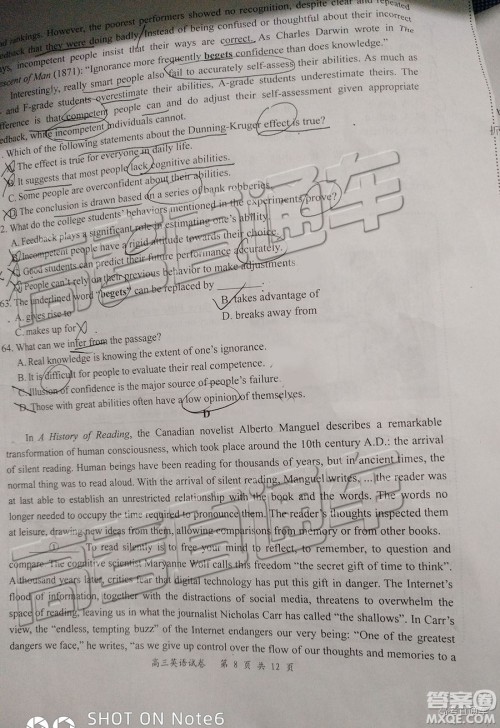 rankings. However, the poorest performers showed no recognition, despite clear and repeated
feedback that they were doing badly. Instead of being confused or thoughtful about their incorrect
ways, incompetent people insist that their ways are correct. As Charles Darwin wrote in The
Descent of Man (1871): "Ignorance more frequently begets confidence than does knowledge."
Interestingly, really smart people also fail to accurately self-assess their abilities. As much as
and F-grade students overestimate their abilities, A-grade students underestimate theirs. The
difference is that competent people can and do adjust their self-assessment given appropriate
feedback, while incompetent individuals cannot.
. Which of the following statements about the Dunning-Kruger effect is true?
The effect is true for everyone in daily life.
It suggests that most people lack cognitive abilities.
C. Some people are overconfident about their abilities.
D. The conclusion is drawn based on a series of bank robberies.
2. What do the college students' behaviors mentioned in the experiments prove?
A. Feedback plays a significant role in estimating one's ability.
Incompetent people have a rigid attitude towards their choice.
Good students can predict their future performance accurately.
People can't rely on their previous behavior to make adjustments.
63. The underlined word "begets" can be replaced by ______.
A. gives rise to
B. takes advantage of
C. makes up for
D. breaks away from
64. What can we infer from the passage?
A. Real knowledge is knowing the extent of one's ignorance.
B. It is difficult for people to evaluate their real competence.
C. Illusion of confidence is the major source of people's failure.
D. Those with great abilities often have a low opinion of themselves.
D
In A History of Reading, the Canadian novelist Alberto Manguel describes a remarkable
transformation of human consciousness, which took place around the 10th century A.D.: the arrival
of silent reading. Human beings have been reading for thousands of years, but in ancient times, the
normal thing was to read aloud. With the arrival of silent reading, Manguel writes, ... the reader was
at last able to establish an unrestricted relationship with the book and the words. The words no
longer needed to occupy the time required to pronounce them. The reader's thoughts inspected them
at leisure, drawing new ideas from them, allowing comparisons from memory or from other books.
① To read silently is to free your mind to reflect, to remember, to question and
compare. The cognitive scientist Maryanne Wolf calls this freedom "the secret gift of time to think".
A thousand years later, critics fear that digital technology has put this gift in danger. The Internet's
flood of information, together with the distractions of social media, threatens to overwhelm the
space of reading, leaving us in what the journalist Nicholas Carr has called "the shallows". In Carr's
view, the "endless, tempting buzz" of the Internet endangers our very being: "One of the greatest
dangers we face," he writes, "as we give up control over the flow of our thoughts and memories to a
高三英语试卷 第 8 页 共 12 页
SHOT ON Note6
答案圈
MXQE.COM